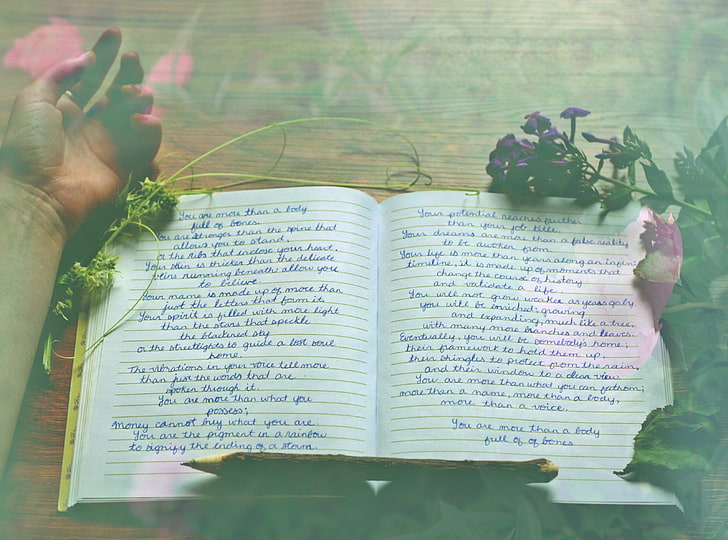 You are more than a body
full of bones.
You are stronger than the spine that
allows you to stand,
or the ribs that inclose your heart.
Your skin is thicker than the delicate
veins running beneath allow you
to believe.
Your name is made up of more than
just the letters that form it
Your spirit is filled with more light
than the stars that speckle
the blackend sky
or the streetlights to guide a lost soul
home.
The vibrations in your voice tell more
than just the words that are
spoken through it.
You are more than what you
possess;
Money cannot buy what you are.
You are the pigment in a rainbow
to signify the ending of a storm.
Your potential reaches further
than your job title.
Your dreams are more than a false reality
to be awoken from.
Your life is more than years along an
timeline, it is made up of moments that
change the course of history
and validate a life.
You will not grow weaker as years go by,
you will be enriched, growing
and expanding, much like a tree,
with many more branches and leaves.
Eventually, you will be somebody's home;
their framework to hold them up,
their shingles to protect from the rain,
and their window to a clear view.
You are more than what you can fathom;
more than a name, more than a body,
more than a voice.
You are more than a body
full of of bones